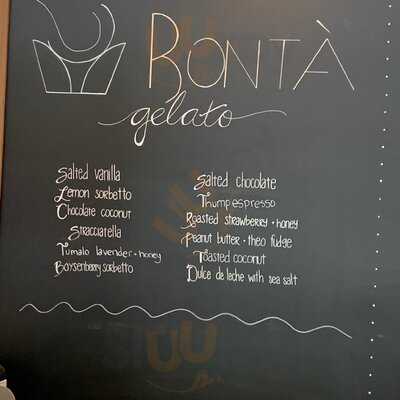 BONTÀ
gelato
Salted vanilla
Lemon sorbetto
Chocolate coconut
Stracciatella
Tumalo lavender + honey
Boysenberry sorbetto
Salted chocolate
Thump espresso
Roasted strawberry + honey
Peanut butter + theo fudge
Toasted coconut
Dulce de leche with sea salt